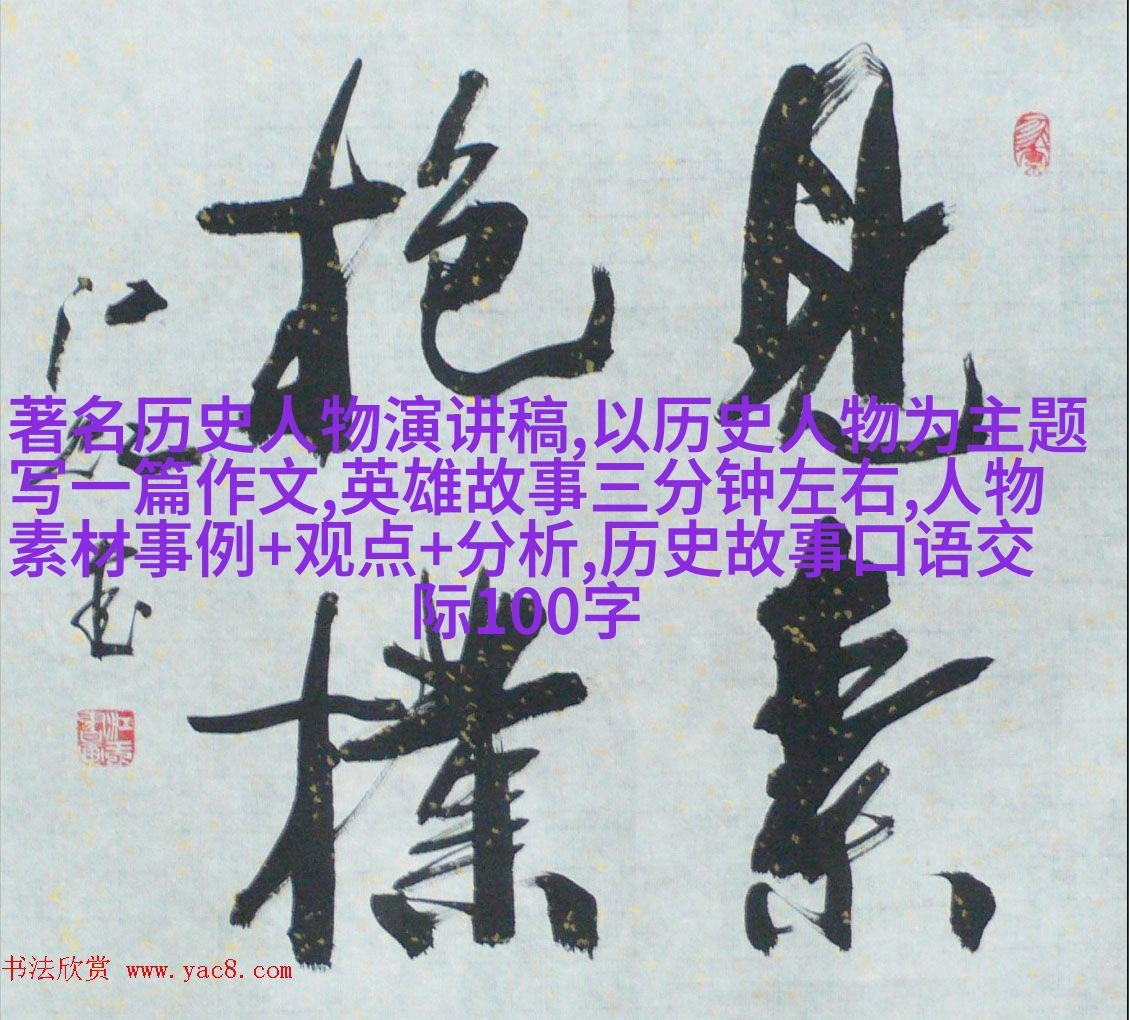 見素
抱樸
著名历史人物演讲稿,以历史人物为主题
写一篇作文,英雄故事三分钟左右,人物
素材事例+观点+分析,历史故事口语交
际100字
书法欣赏 www.yac8.com